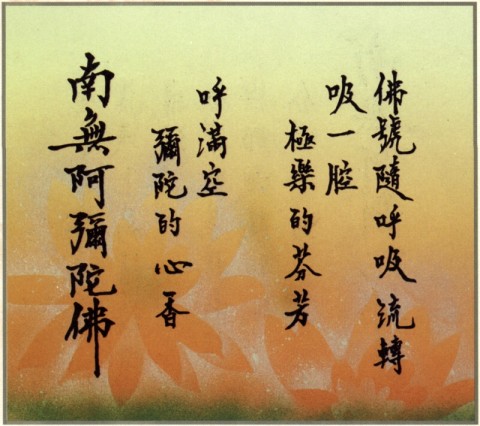 佛號隨呼吸流轉
吸一腔
極樂的芬芳
呼滿空
彌陀的心香
南無阿彌陀佛